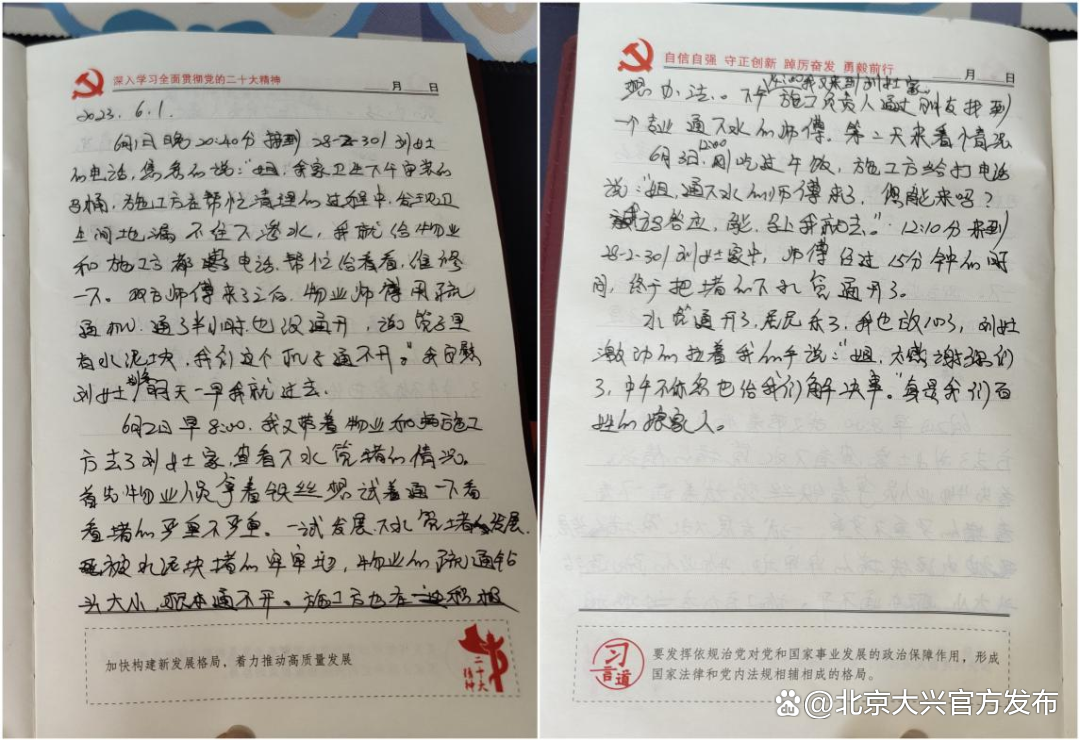 深入学习全面贯彻党的二十大精神
月 日
2023. 6.1.
6月1日晚20:40分接到28-2-301刘女士
的电话,焦急的说:“姐,我家卫生下午安装的
马桶,施工方在帮忙清理的过程中,发现卫
生间地漏不往下渗水,我就给物业
和施工方都打电话,帮忙给看看,维修
一下。双方师傅来了之后,物业师傅用疏
通机,通了半小时也没通开,说管子里
有水泥块,我们这个机子通不开。”我安慰
刘女士,明天一早我就过去。
6月2日早8:00,我又带着物业和施工
方去了刘女士家,查看下水管堵的情况。
首先物业人员拿着铁丝想试着通一下看
看堵的严重不严重。一试发展,下水管堵发展
被水泥块堵的牢牢地,物业的疏通钻
头大小,根本通不开。施工方也在一边积极
加快构建新发展格局,着力推动高质量发展
二十大
精神
自信自强 守正创新 踔厉奋发 勇毅前行
月 日
我又来到刘女士家
想办法。下午施工负责人通过朋友找到
一个专业通下水的师傅。第二天来看个情况
6月3日12:00刚吃过午饭,施工方给打电话
说:“姐,通下水的师傅来了,您能来吗?
答应,能,马上我就去。”12:10分来到
28-2-301刘女士家中,师傅经过15分钟的时
间,终于把堵的下水管通开了。
水管通开了,居民乐了,我也放心了,刘女士
激动的拉着我的手说:“姐,太感谢你们
了,中午不休息也给我们解决事。”真是我们百
姓的娘家人。
习
言道
要发挥依规治党对党和国家事业发展的政治保障作用,形成
国家法律和党内法规相辅相成的格局。
@北京大兴官方发布